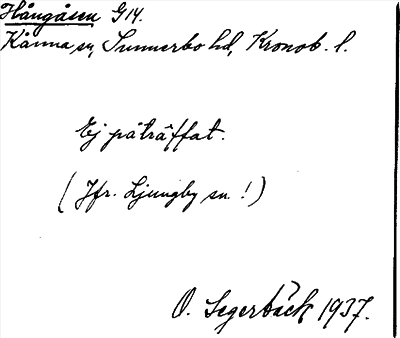 Hångåsen G14.
Kånna sn, Sunnerbo hd, Kronob. l.
Ej påträffat.
(Jfr. Ljungby sn !)
O. Segerbäck 1937.